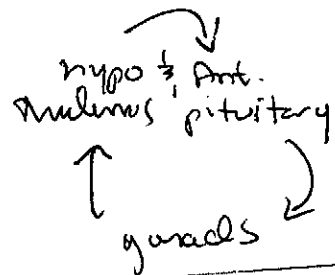 hypo & Ant.
thalamus, pituitary
gonads